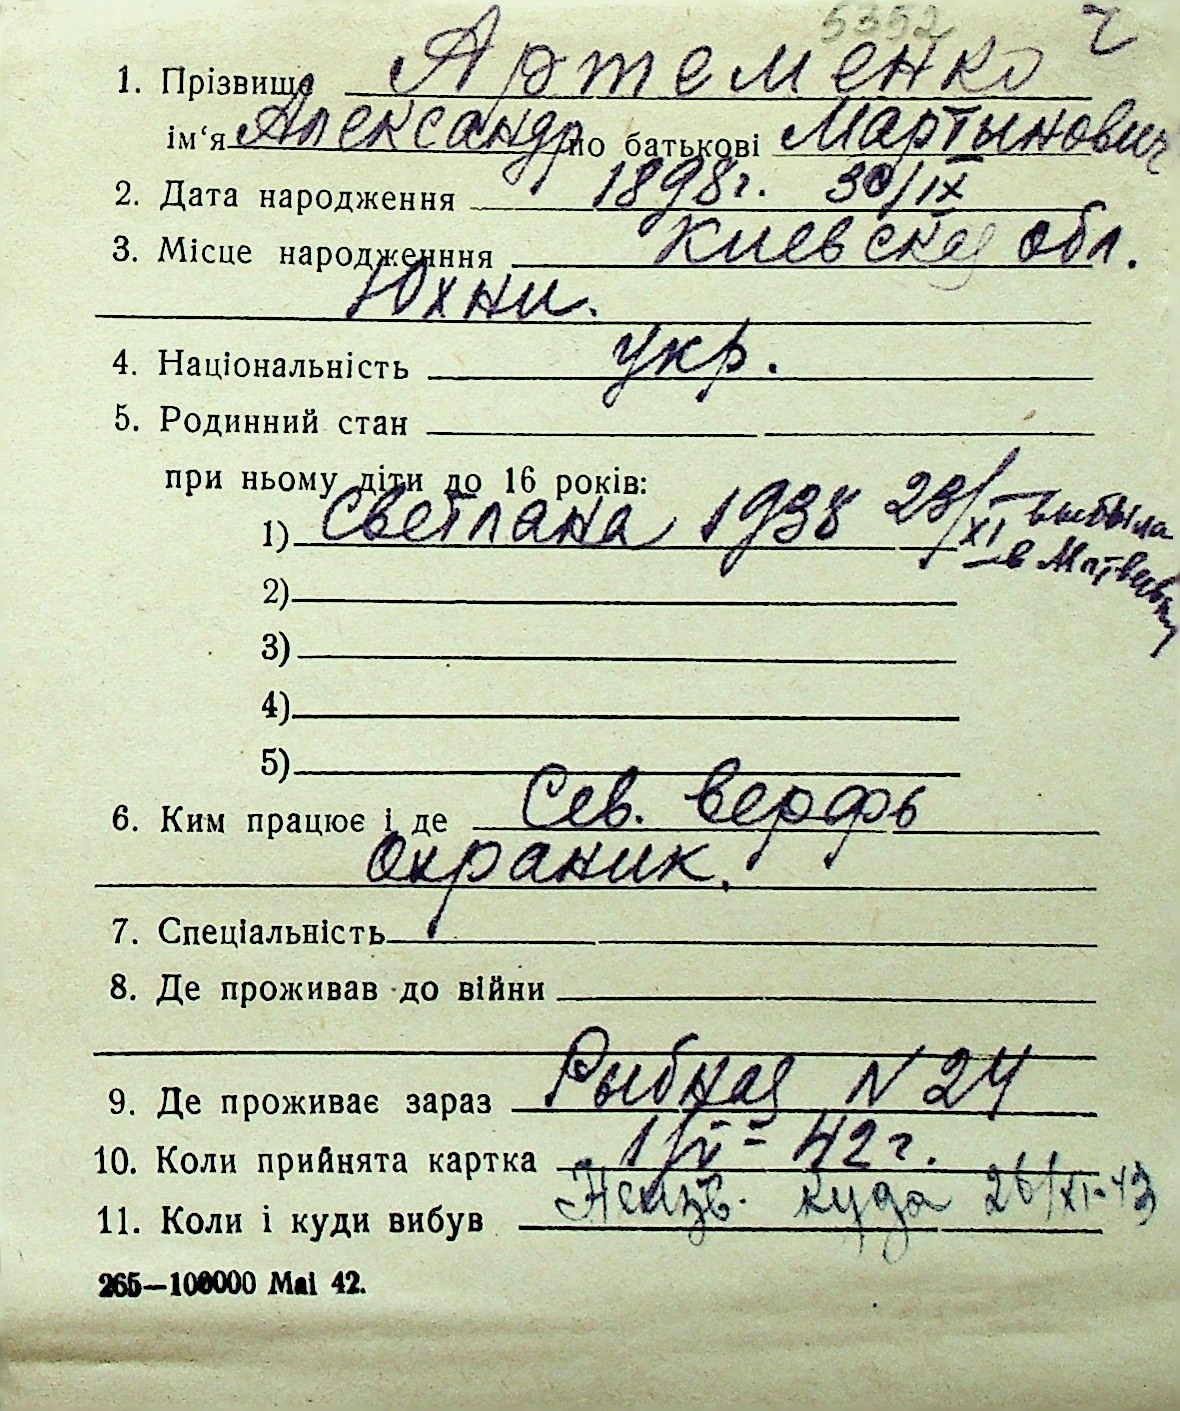 5352 ч
1. Прізвище Артеменко
ім‘я Александр по батькові Мартынович
2. Дата народження 1898г. 30/IX
3. Місце народженння Киевская обл.
Юхни.
4. Національність укр.
5. Родинний стан
при ньому діти до 16 років:
1) Светлана 1938 23/XI выбыла
в
2)
3)
4)
5)
6. Ким працює і де Сев. верфь
охраник.
7. Спеціальність
8. Де проживав до війни
9. Де проживає зараз Рыбная N 24
10. Коли прийнята картка 1/V - 42 г.
11. Коли і куди вибув Неизв. куда 26/XI-43
265—100000 Mai 42.